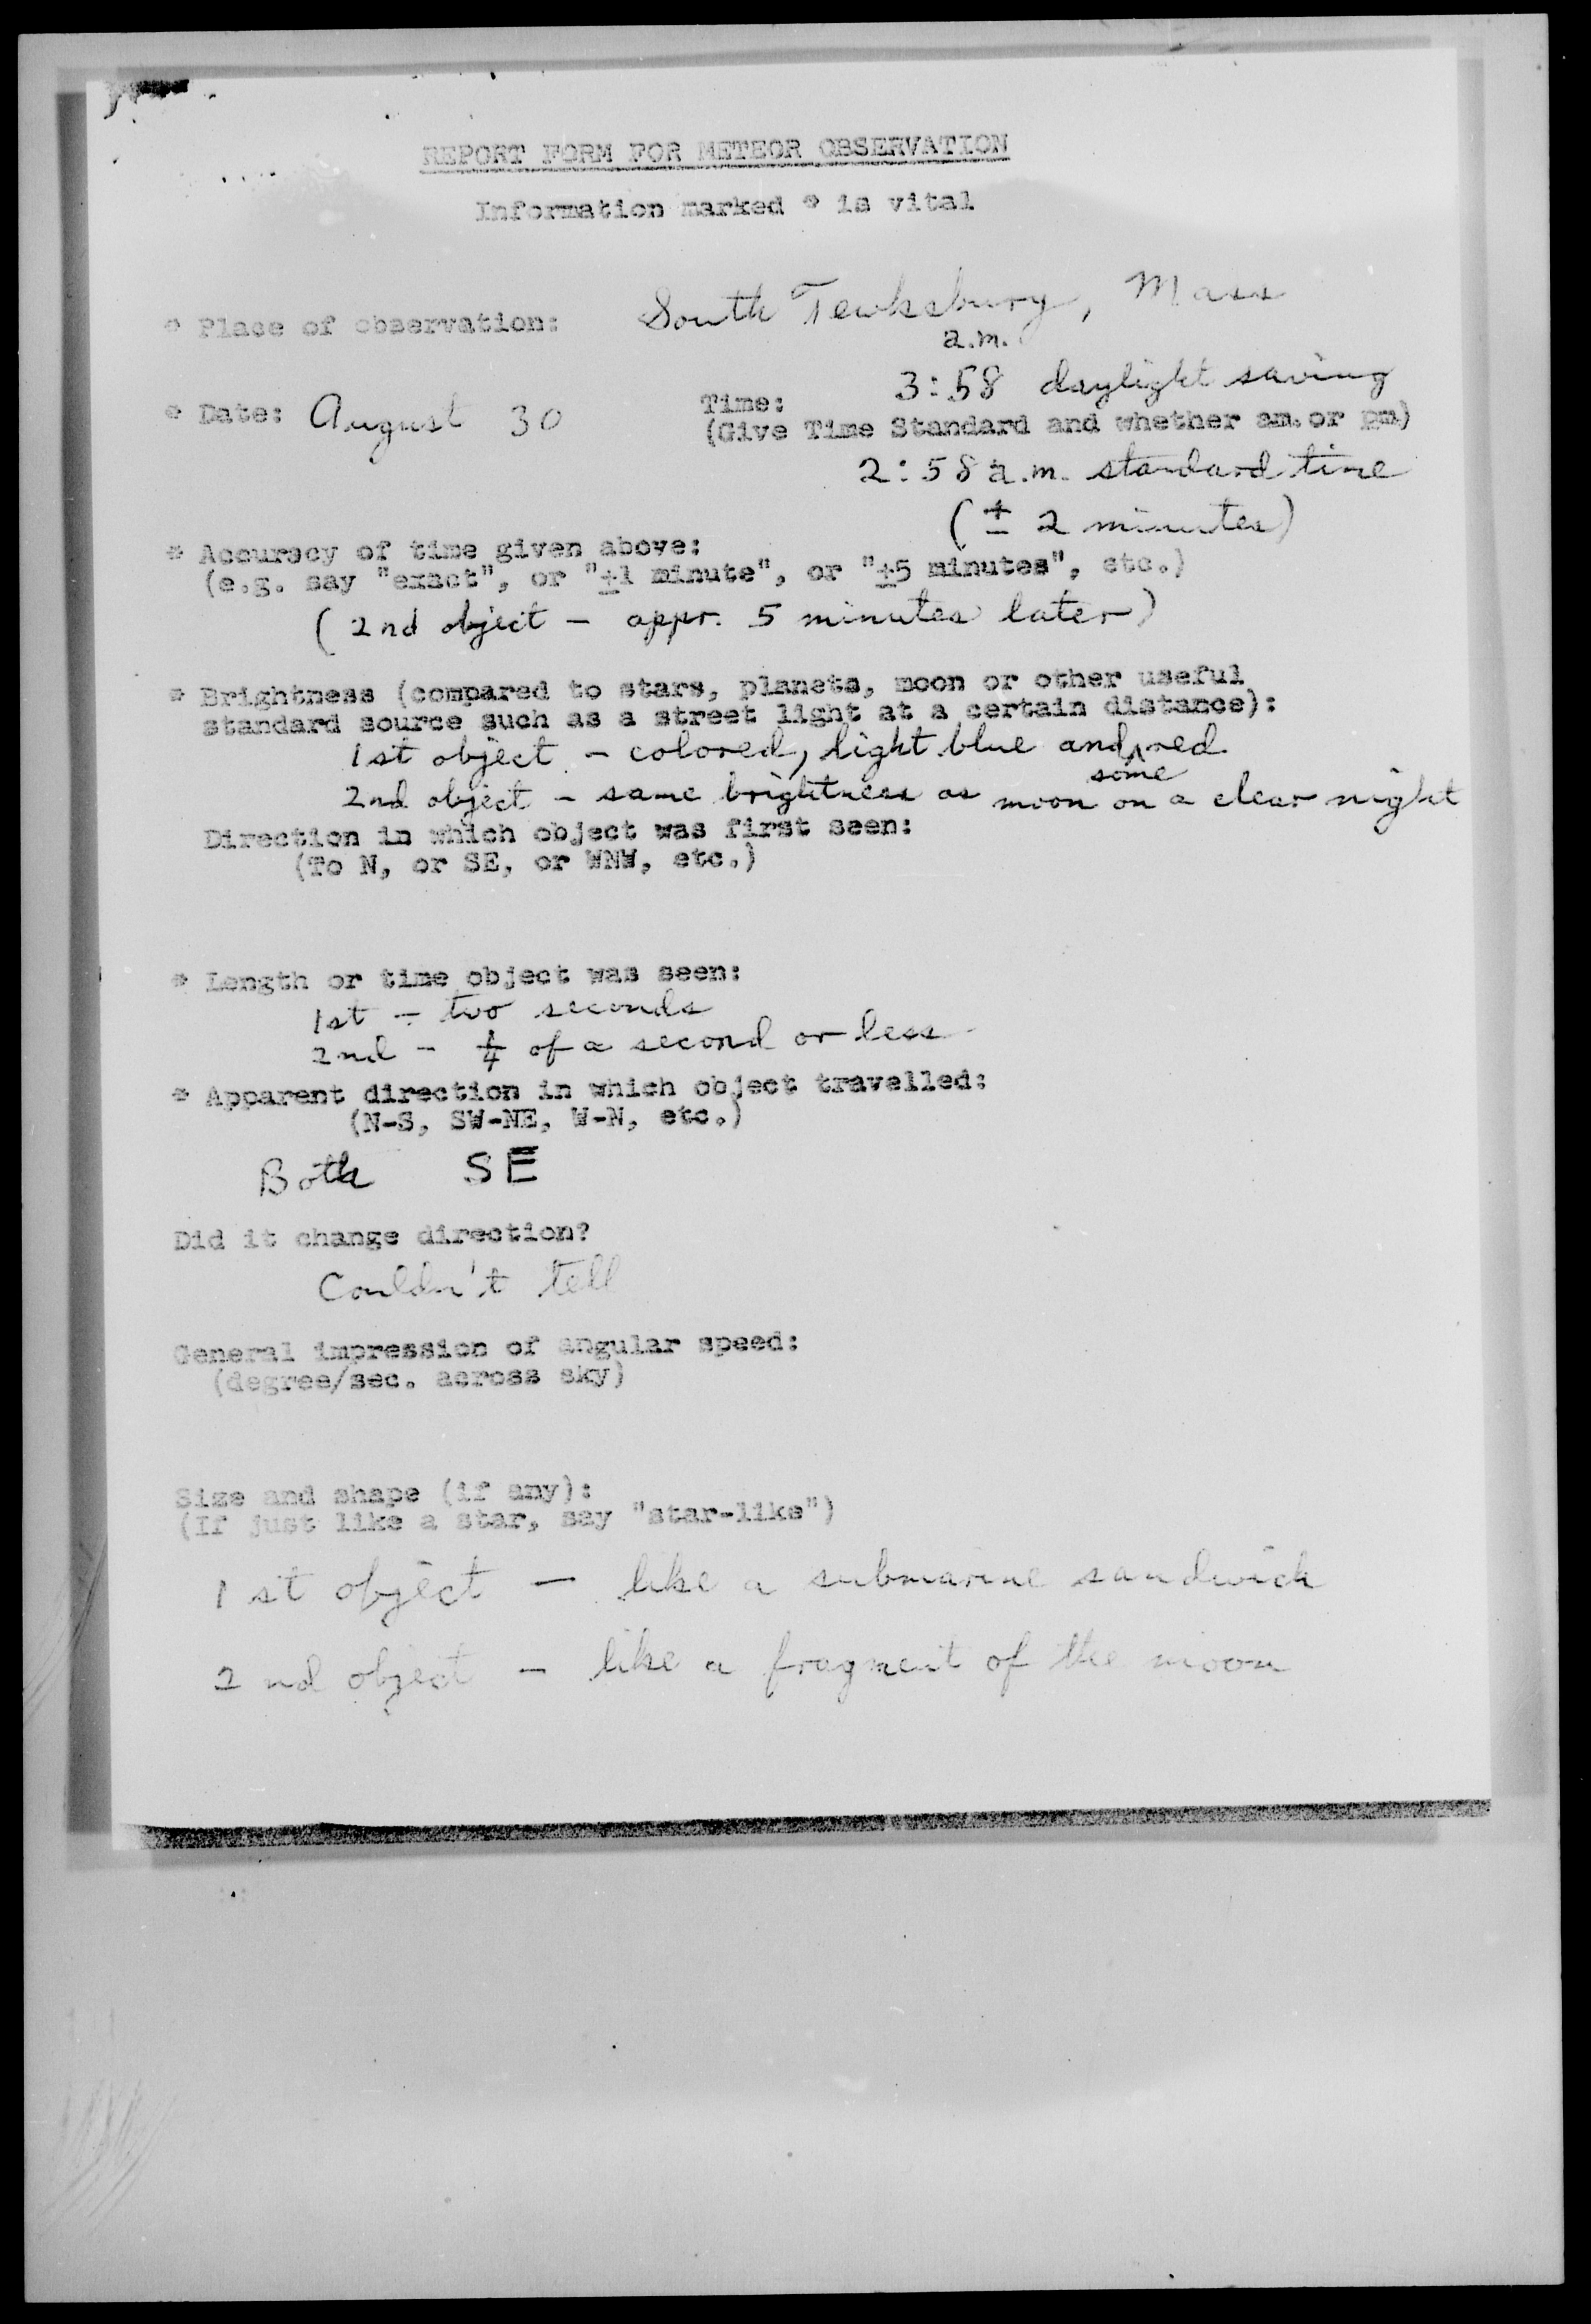 REPORT FORM FOR METEOR OBSERVATION
Information marked * is vital
* Place of observation: South Tewksbury, Mass
a.m.
3:58 daylight saving
* Date: August 30 Time:
(Give Time Standard and whether am. or pm)
2:58 a.m. standard time
(± 2 minutes)
* Accuracy of time given above:
(e.g. say "exact", or "±1 minute", or "±5 minutes", etc.)
(2nd object - appr. 5 minutes later)
* Brightness (compared to stars, planets, moon or other useful
standard source such as a street light at a certain distance):
1st object - colored, light blue and some red
2nd object - same brightness as moon on a clear night
Direction in which object was first seen:
(To N, or SE, or WNW, etc.)
* Length or time object was seen:
1st - two seconds
2nd - 1/4 of a second or less
* Apparent direction in which object travelled:
(N-S, SW-NE, W-N, etc.)
Both SE
Did it change direction?
Couldn't tell
General impression of angular speed:
(degree/sec. across sky)
Size and shape (if any):
(If just like a star, say "star-like")
1st object - like a submarine sandwich
2nd object - like a fragment of the moon